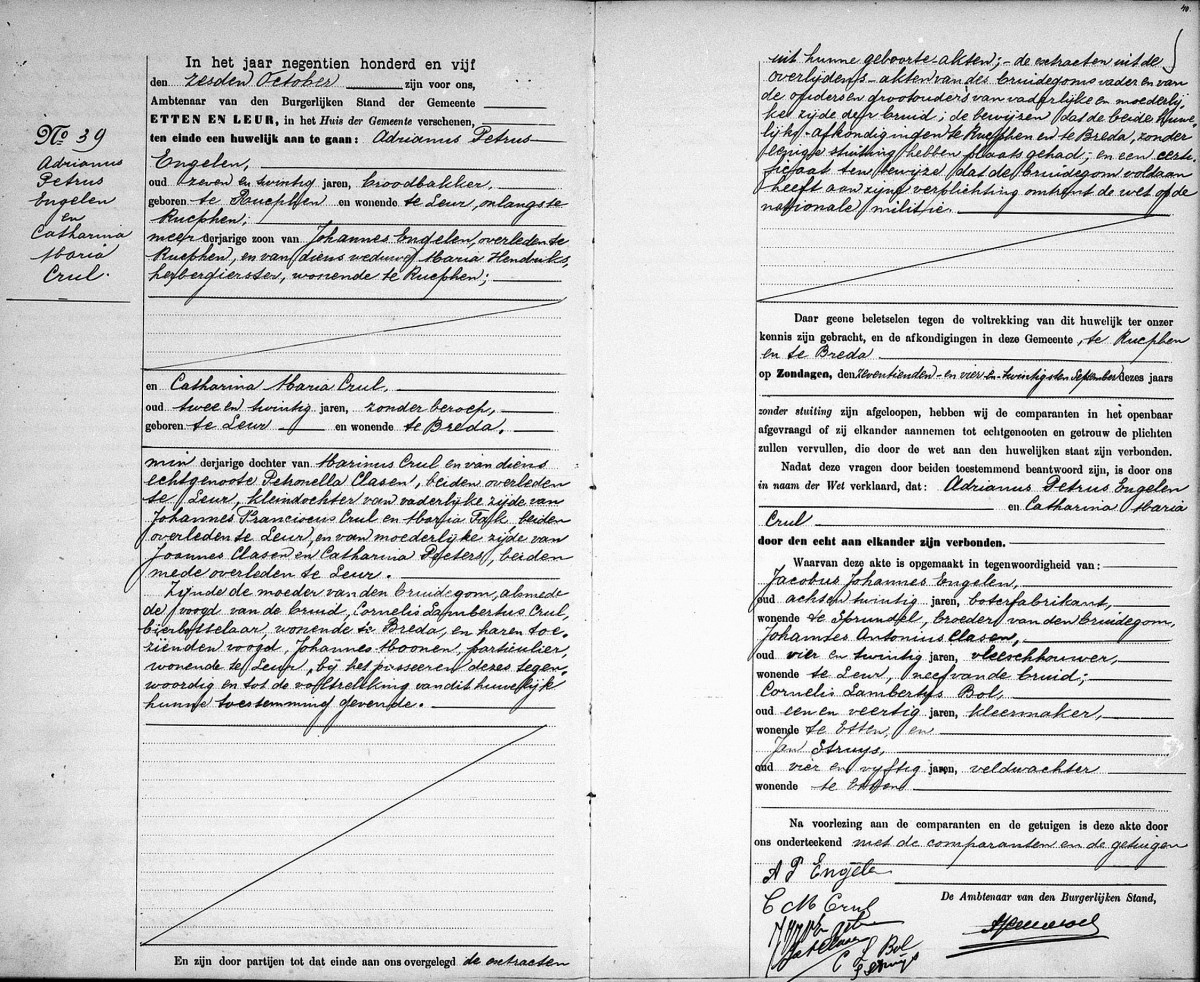 In het jaar negentien honderd en vijf
den zesden October zijn voor ons,
Ambtenaar van den Burgerlijken Stand der Gemeente
ETTEN EN LEUR, in het Huis der Gemeente verschenen,
ten einde een huwelijk aan te gaan: Adrianus Petrus
Engelen,
oud zeven en twintig jaren, broodbakker,
geboren te Rucphen en wonende te Leur, onlangs te
Rucphen;
meerderjarige zoon van Johannes Engelen, overleden te
Rucphen, en van diens weduwe Maria Hendriks,
herbergierster, wonende te Rucphen;
No 39
Adrianus
Petrus
Engelen
en
Catharina
Maria
Crul.
en Catharina Maria Crul,
oud twee en twintig jaren, zonder beroep,
geboren te Leur en wonende te Breda.
minderjarige dochter van Marinus Crul en van diens
echtgenoote Petronella Clasen, beiden overleden
te Leur, kleindochter van vaderlijke zijde van
Johannes Franciscus Crul en Maria Fak, beiden
overleden te Leur, en van moederlijke zijde van
Joannes Clasen en Catharina Peeters, beiden
mede overleden te Leur.
Zijnde de moeder van den bruidegom, alsmede
de voogd van de bruid, Cornelis Lambertus Crul,
bierbottelaar, wonende te Breda, en haren toe-
zienden voogd, Johannes Moonen, particulier,
wonende te Leur, bij het passeeren dezes tegen-
woordig en tot de voltrekking van dit huwelijk
hunne toestemming gevende.
En zijn door partijen tot dat einde aan ons overgelegd de extracten
uit hunne geboorte-akten; de extracten uit de
overlijdens-akten van des bruidegoms vader en van
de ouders en grootouders van vaderlijke en moederlij-
ke zijde der bruid; de bewijzen dat de beide huwe-
lijks-afkondigingen te Rucphen en te Breda, zonder
eenige stuiting hebben plaats gehad; en een certi-
ficaat ten bewijze dat de bruidegom voldaan
heeft aan zijne verplichting omtrent de wet op de
nationale militie.
Daar geene beletselen tegen de voltrekking van dit huwelijk ter onzer
kennis zijn gebracht, en de afkondigingen in deze Gemeente, te Rucphen
en te Breda
op Zondagen, den zeventienden en vier en twintigsten September dezes jaars
zonder stuiting zijn afgeloopen, hebben wij de comparanten in het openbaar
afgevraagd of zij elkander aannemen tot echtgenooten en getrouw de plichten
zullen vervullen, die door de wet aan den huwelijken staat zijn verbonden.
Nadat deze vragen door beiden toestemmend beantwoord zijn, is door ons
in naam der Wet verklaard, dat: Adrianus Petrus Engelen
en Catharina Maria
Crul
door den echt aan elkander zijn verbonden.
Waarvan deze akte is opgemaakt in tegenwoordigheid van:
Jacobus Johannes Engelen,
oud acht en twintig jaren, boterfabrikant,
wonende te Sprundel, broeder van den bruidegom,
Johannes Antonius Clasen,
oud vier en twintig jaren, vleeschhouwer,
wonende te Leur, neef van de bruid;
Cornelis Lambertus Bol,
oud een en veertig jaren, kleermaker,
wonende te Etten, en
Jan Struijs,
oud vier en vijftig jaren, veldwachter
wonende te Etten
Na voorlezing aan de comparanten en de getuigen is deze akte door
ons onderteekend met de comparanten en de getuigen
A P Engelen
De Ambtenaar van den Burgerlijken Stand,
C M Crul
C L Bol
J Struijs